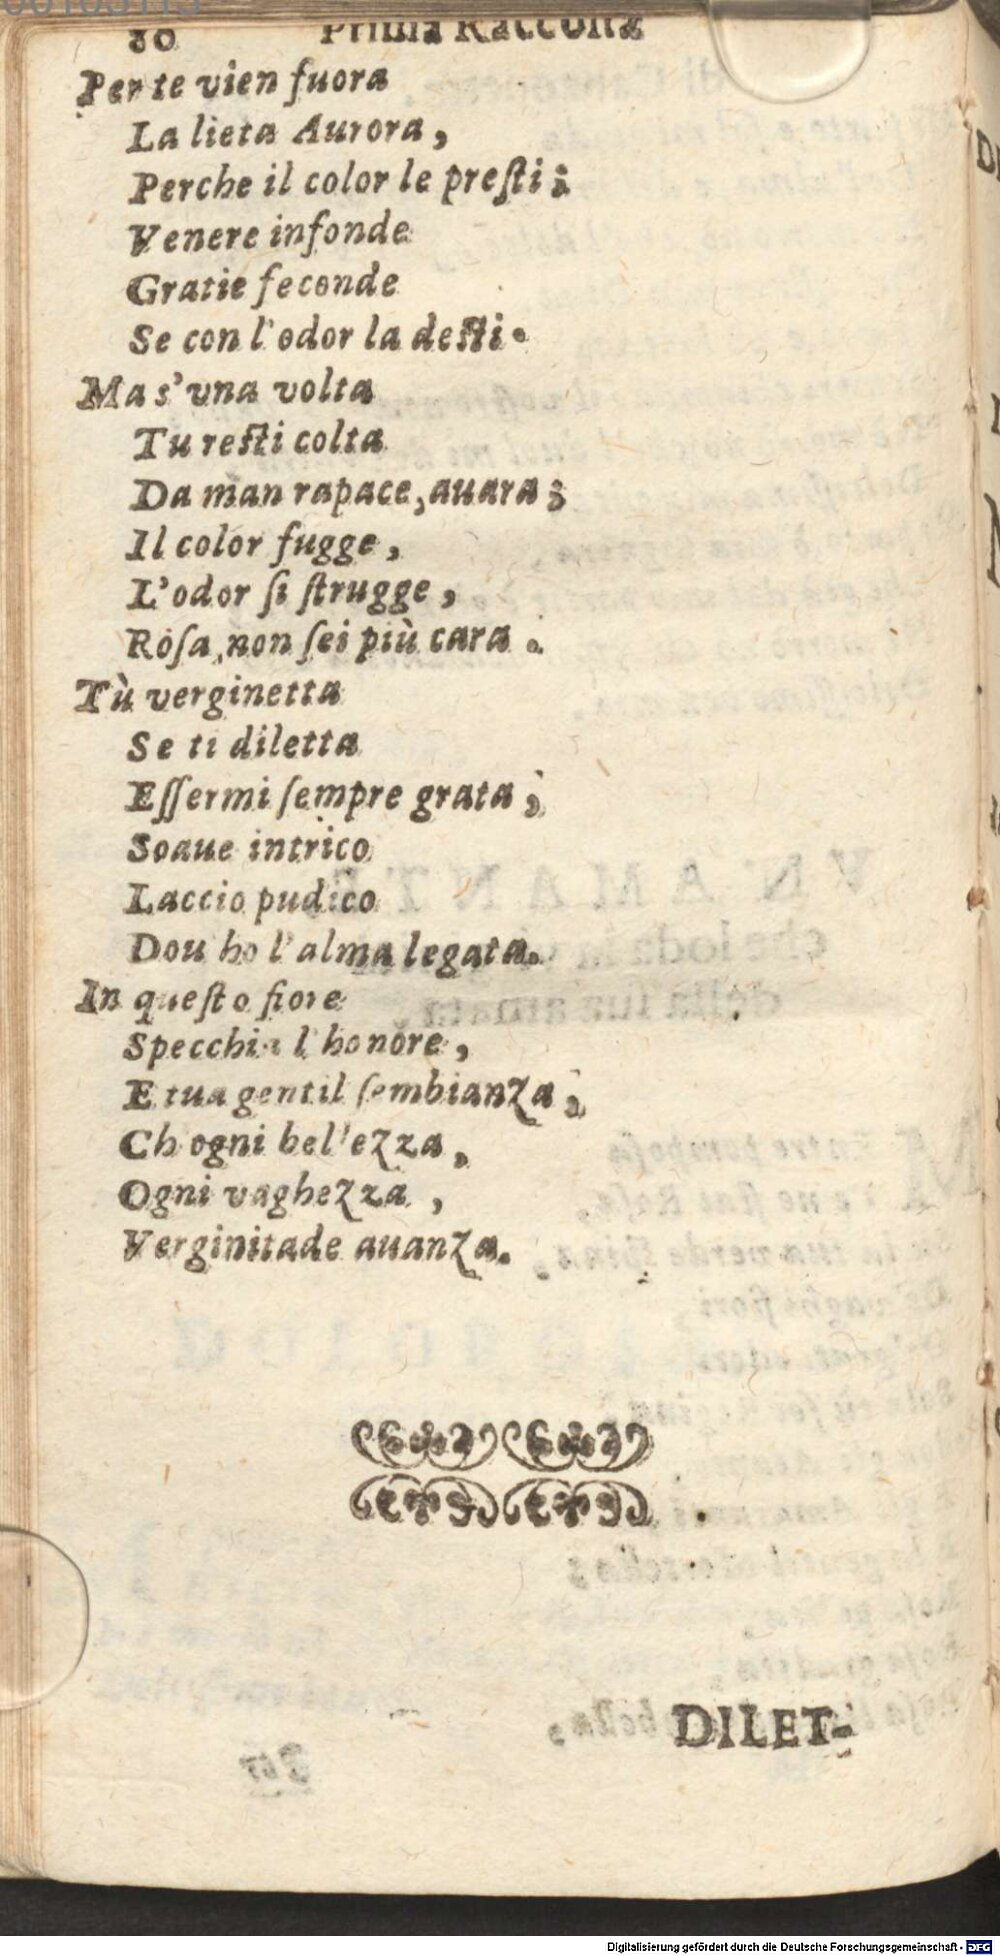 80 Prima Raccolta
Per te vien fuora
La lieta Aurora,
Perche il color le preſti;
Venere infonde
Gratie feconde
Se con l'odor la deſti.
Ma s'vna volta
Tu reſti colta
Da man rapace, auara;
Il color fugge,
L'odor ſi ſtrugge,
Roſa non ſei più cara.
Tù verginetta
Se ti diletta
Eſſermi ſempre grata;
Soaue intrico
Laccio pudico
Dou ho l'alma legata.
In queſto fiore
Specchia l'honore,
E tua gentil ſembianza;
Ch ogni bellezza,
Ogni vaghezza,
Verginitade auanza.
DILET-
Digitalisierung gefördert durch die Deutsche Forschungsgemeinschaft - DFG